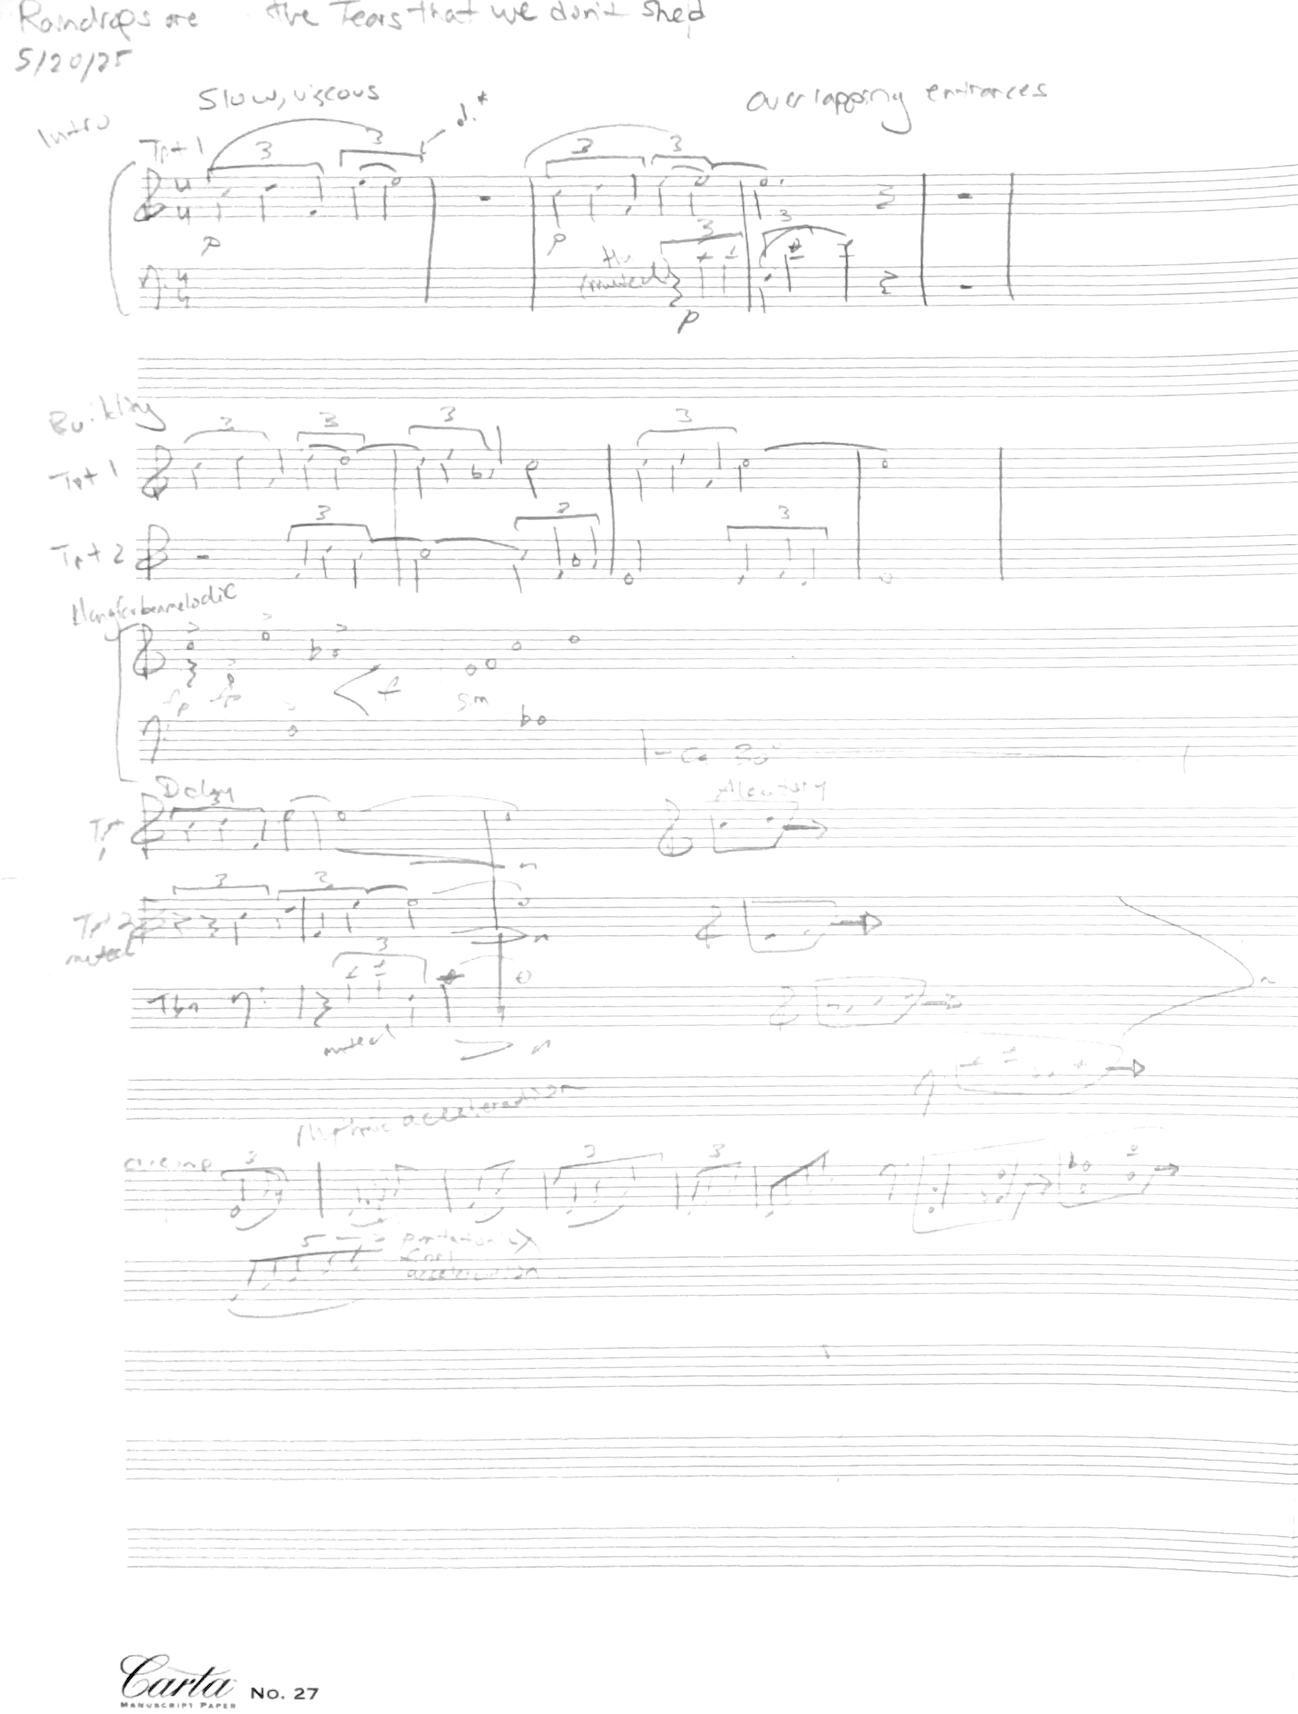 Raindrops are the Tears that we don't shed
5/20/25
Slow, viscous
overlapping entrances
Intro
Tpt 1
3 3 3 3
p p
Hn
(muted)
3 3
p
Building
Tpt 1
3 3 3 3
Tpt 2
3 3 3
Klangfarbenmelodie
fp fp f sim
Delay
Aleatory
3
n
Tpt 2
muted
3 3
n
Tbn
3
muted
n
n
Rhythmic acceleration
3 3 3
5
acceleration
Carta
MANUSCRIPT PAPER
No. 27